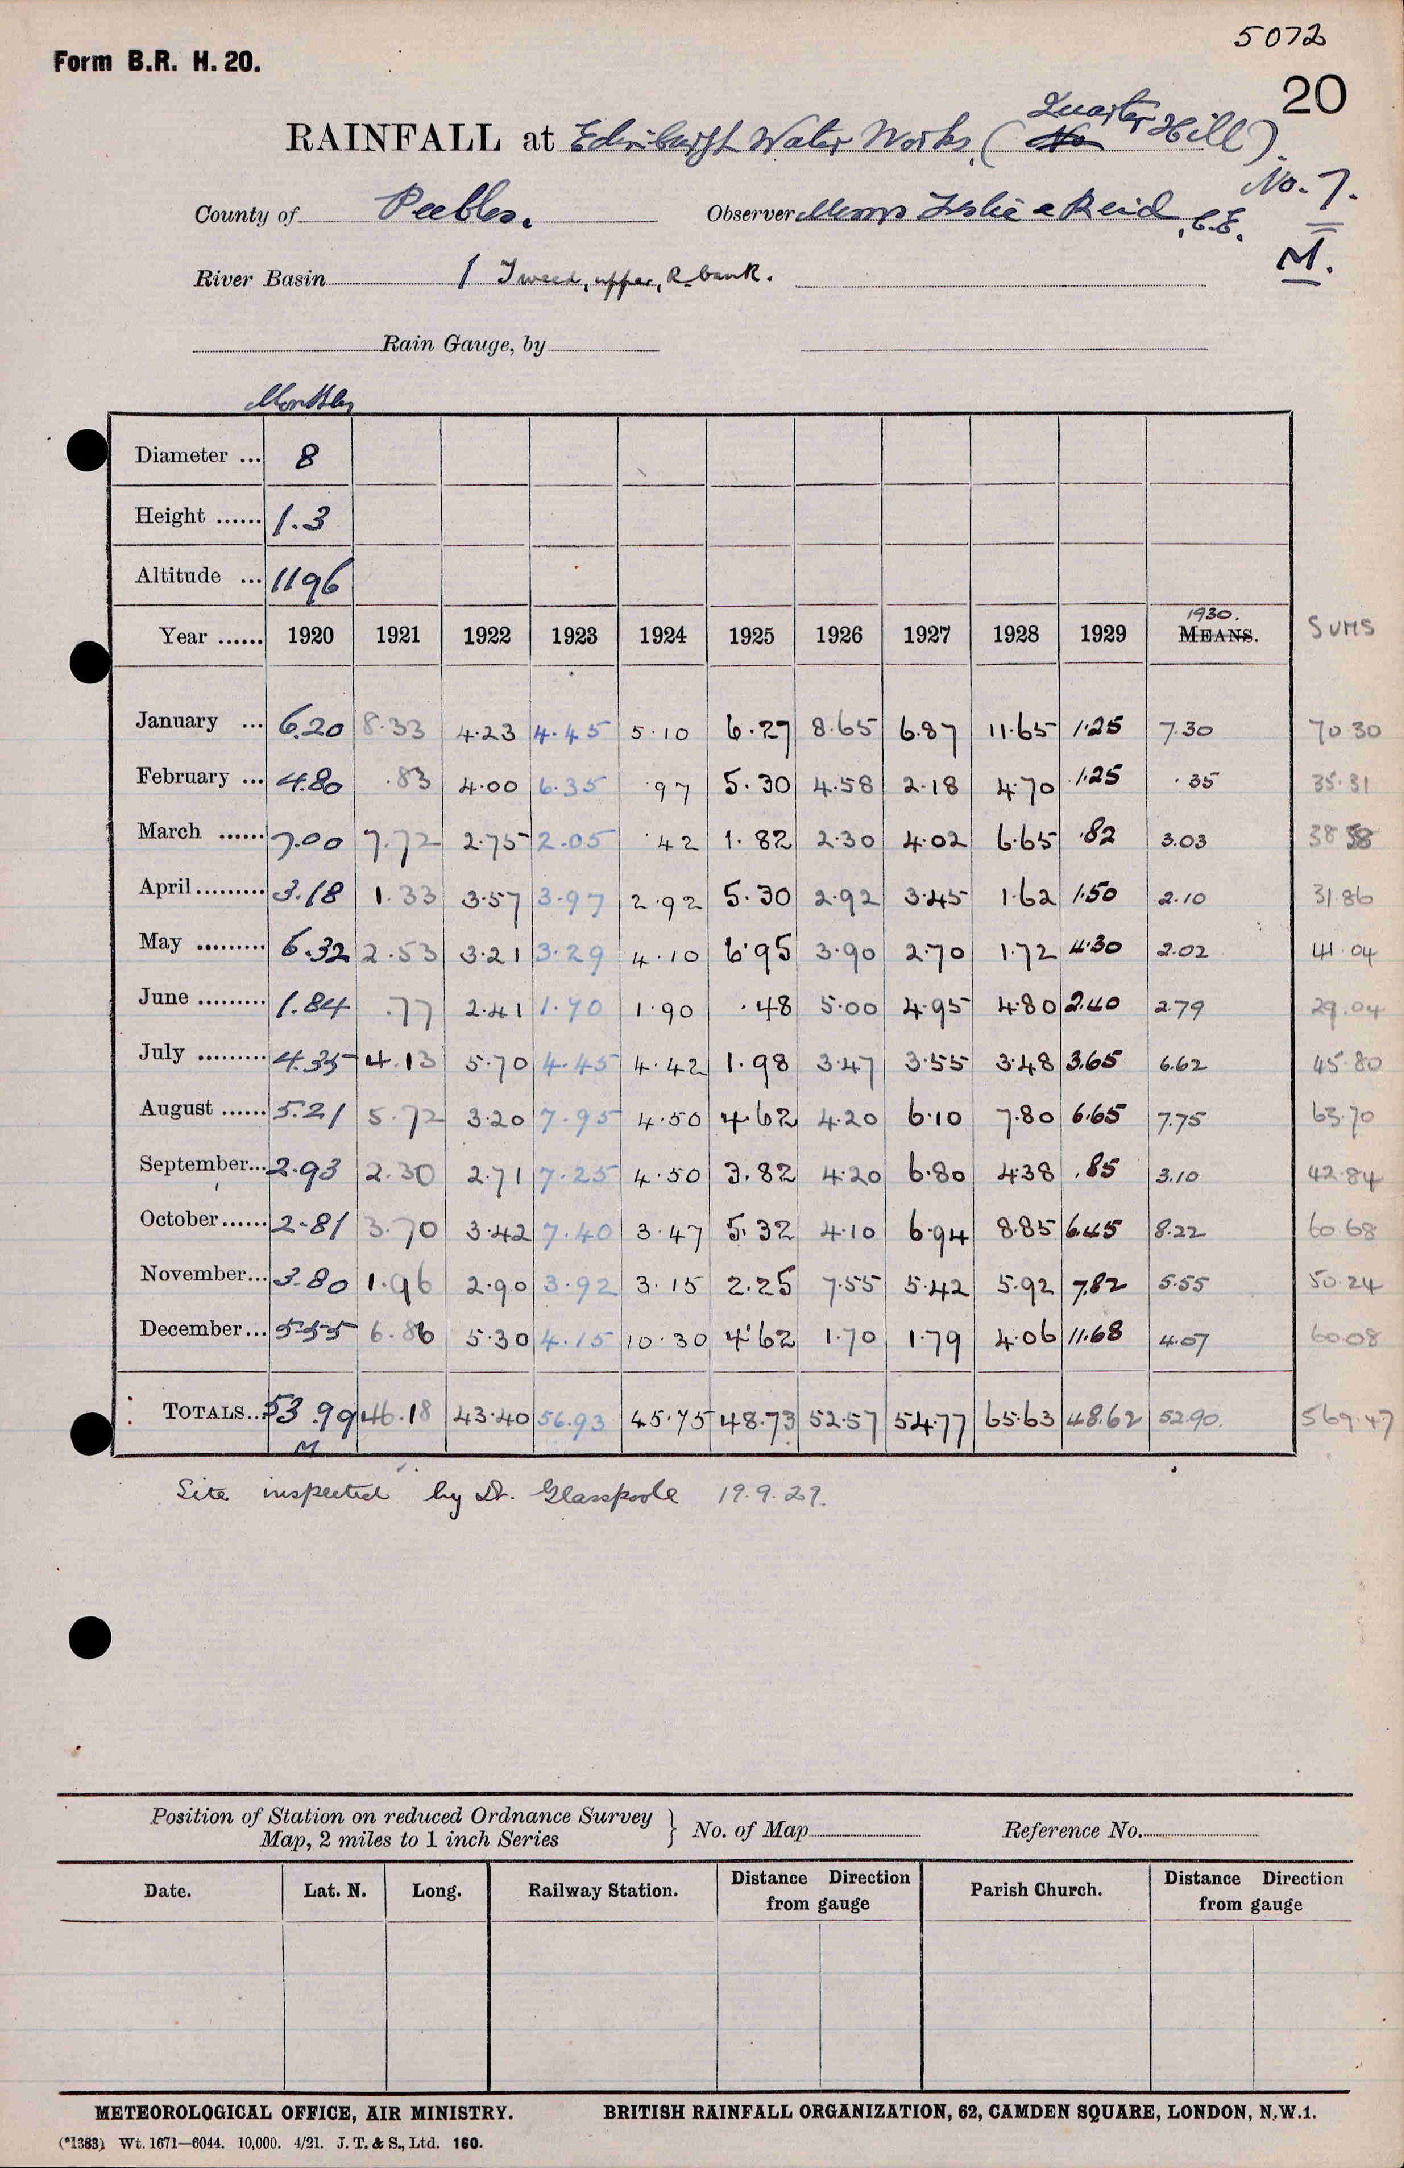 5072
Form B.R. H. 20.
20
RAINFALL at Edinburgh Water Works, (Quarter Hill).
No. 7.
County of Peebles. Observer Messrs Leslie & Reid, C.E.
M.
River Basin / Tweed, upper, R. bank.
Rain Gauge, by
Monthly
Diameter ... 8
Height ...... 1.3
Altitude ... 1196
1930.
Year ...... 1920 1921 1922 1923 1924 1925 1926 1927 1928 1929 MEANS. SUMS
January ... 6.20 8.33 4.23 4.45 5.10 6.27 8.65 6.87 11.65 1.25 7.30 70.30
February ... 4.80 .83 4.00 6.35 .97 5.30 4.58 2.18 4.70 1.25 .35 35.31
March ...... 7.00 7.72 2.75 2.05 .42 1.82 2.30 4.02 6.65 .82 3.03 38.58
April ......... 3.18 1.33 3.57 3.97 2.92 5.30 2.92 3.45 1.62 1.50 2.10 31.86
May ......... 6.32 2.53 3.21 3.29 4.10 6.95 3.90 2.70 1.72 4.30 2.02 41.04
June ......... 1.84 .77 2.41 1.70 1.90 .48 5.00 4.95 4.80 2.40 2.79 29.04
July ......... 4.35 4.13 5.70 4.45 4.42 1.98 3.47 3.55 3.48 3.65 6.62 45.80
August ...... 5.21 5.72 3.20 7.95 4.50 4.62 4.20 6.10 7.80 6.65 7.75 63.70
September... 2.93 2.30 2.71 7.25 4.50 3.82 4.20 6.80 4.38 .85 3.10 42.84
October...... 2.81 3.70 3.42 7.40 3.47 5.32 4.10 6.94 8.85 6.45 8.22 60.68
November... 3.80 1.96 2.90 3.92 3.15 2.25 7.55 5.42 5.92 7.82 5.55 50.24
December... 5.55 6.86 5.30 4.15 10.30 4.62 1.70 1.79 4.06 11.68 4.07 60.08
TOTALS... 53.99 46.18 43.40 56.93 45.75 48.73 52.57 54.77 65.63 48.62 52.90. 569.47
M
Site inspected by Dr. Glasspoole 19.9.29.
Position of Station on reduced Ordnance Survey
Map, 2 miles to 1 inch Series } No. of Map Reference No.
Date. Lat. N. Long. Railway Station. Distance Direction from gauge Parish Church. Distance Direction from gauge
METEOROLOGICAL OFFICE, AIR MINISTRY. BRITISH RAINFALL ORGANIZATION, 62, CAMDEN SQUARE, LONDON, N.W.1.
(*1383) Wt. 1671—6044. 10,000. 4/21. J. T. & S., Ltd. 160.